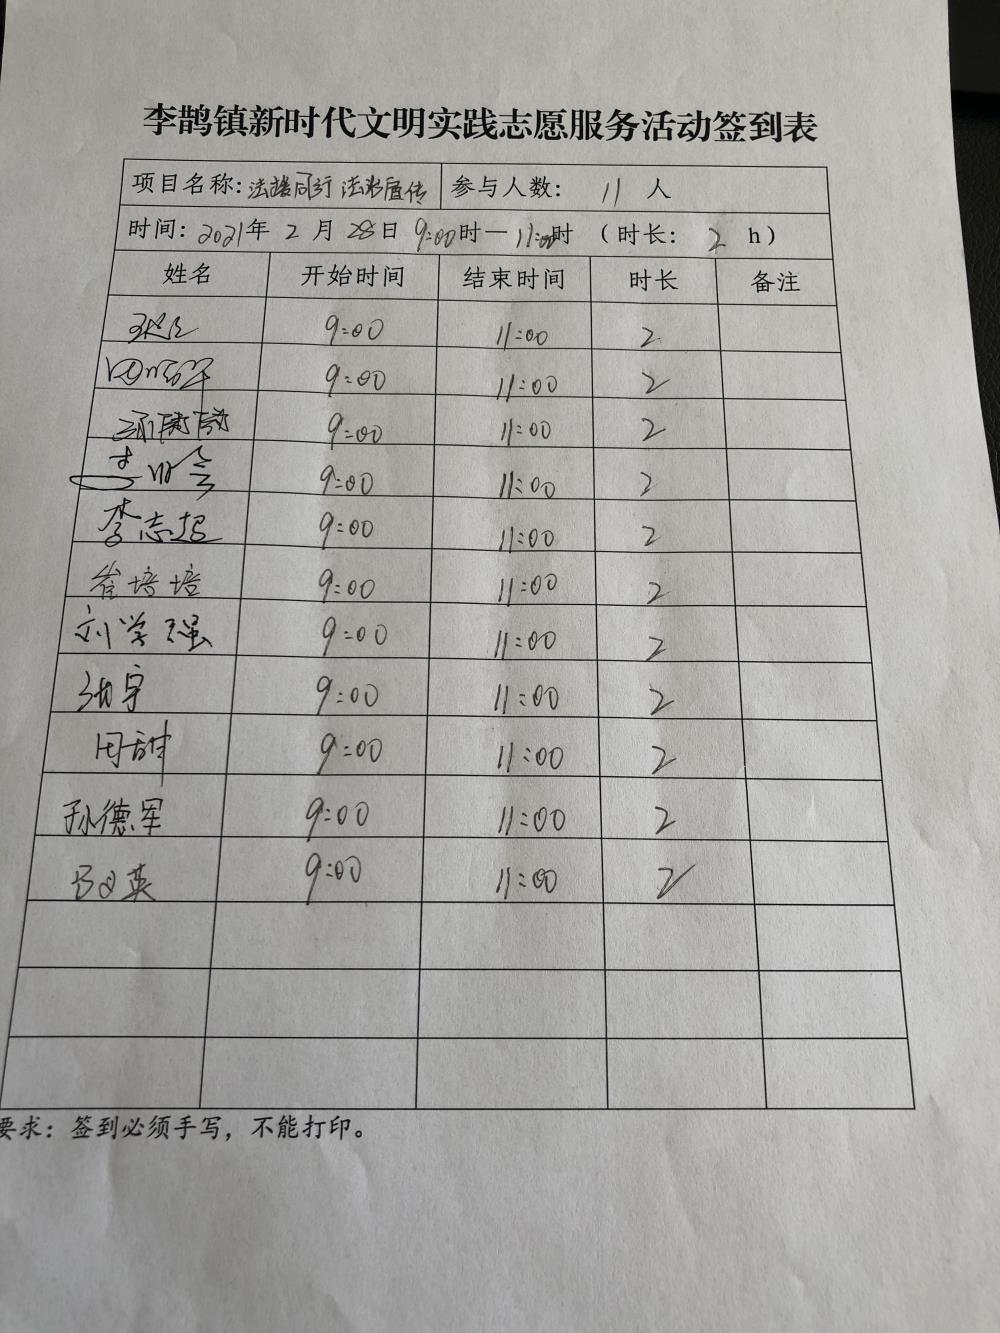 李鹊镇新时代文明实践志愿服务活动签到表
项目名称: 法援同行 法治宣传 参与人数: 11 人
时间: 2021年 2 月 28日 9:00时—11:00时 (时长: 2 h)
姓名 开始时间 结束时间 时长 备注
9:00 11:00 2
9:00 11:00 2
9:00 11:00 2
9:00 11:00 2
李志超 9:00 11:00 2
崔培培 9:00 11:00 2
刘学强 9:00 11:00 2
9:00 11:00 2
周甜 9:00 11:00 2
孙德军 9:00 11:00 2
英 9:00 11:00 2
要求: 签到必须手写，不能打印。